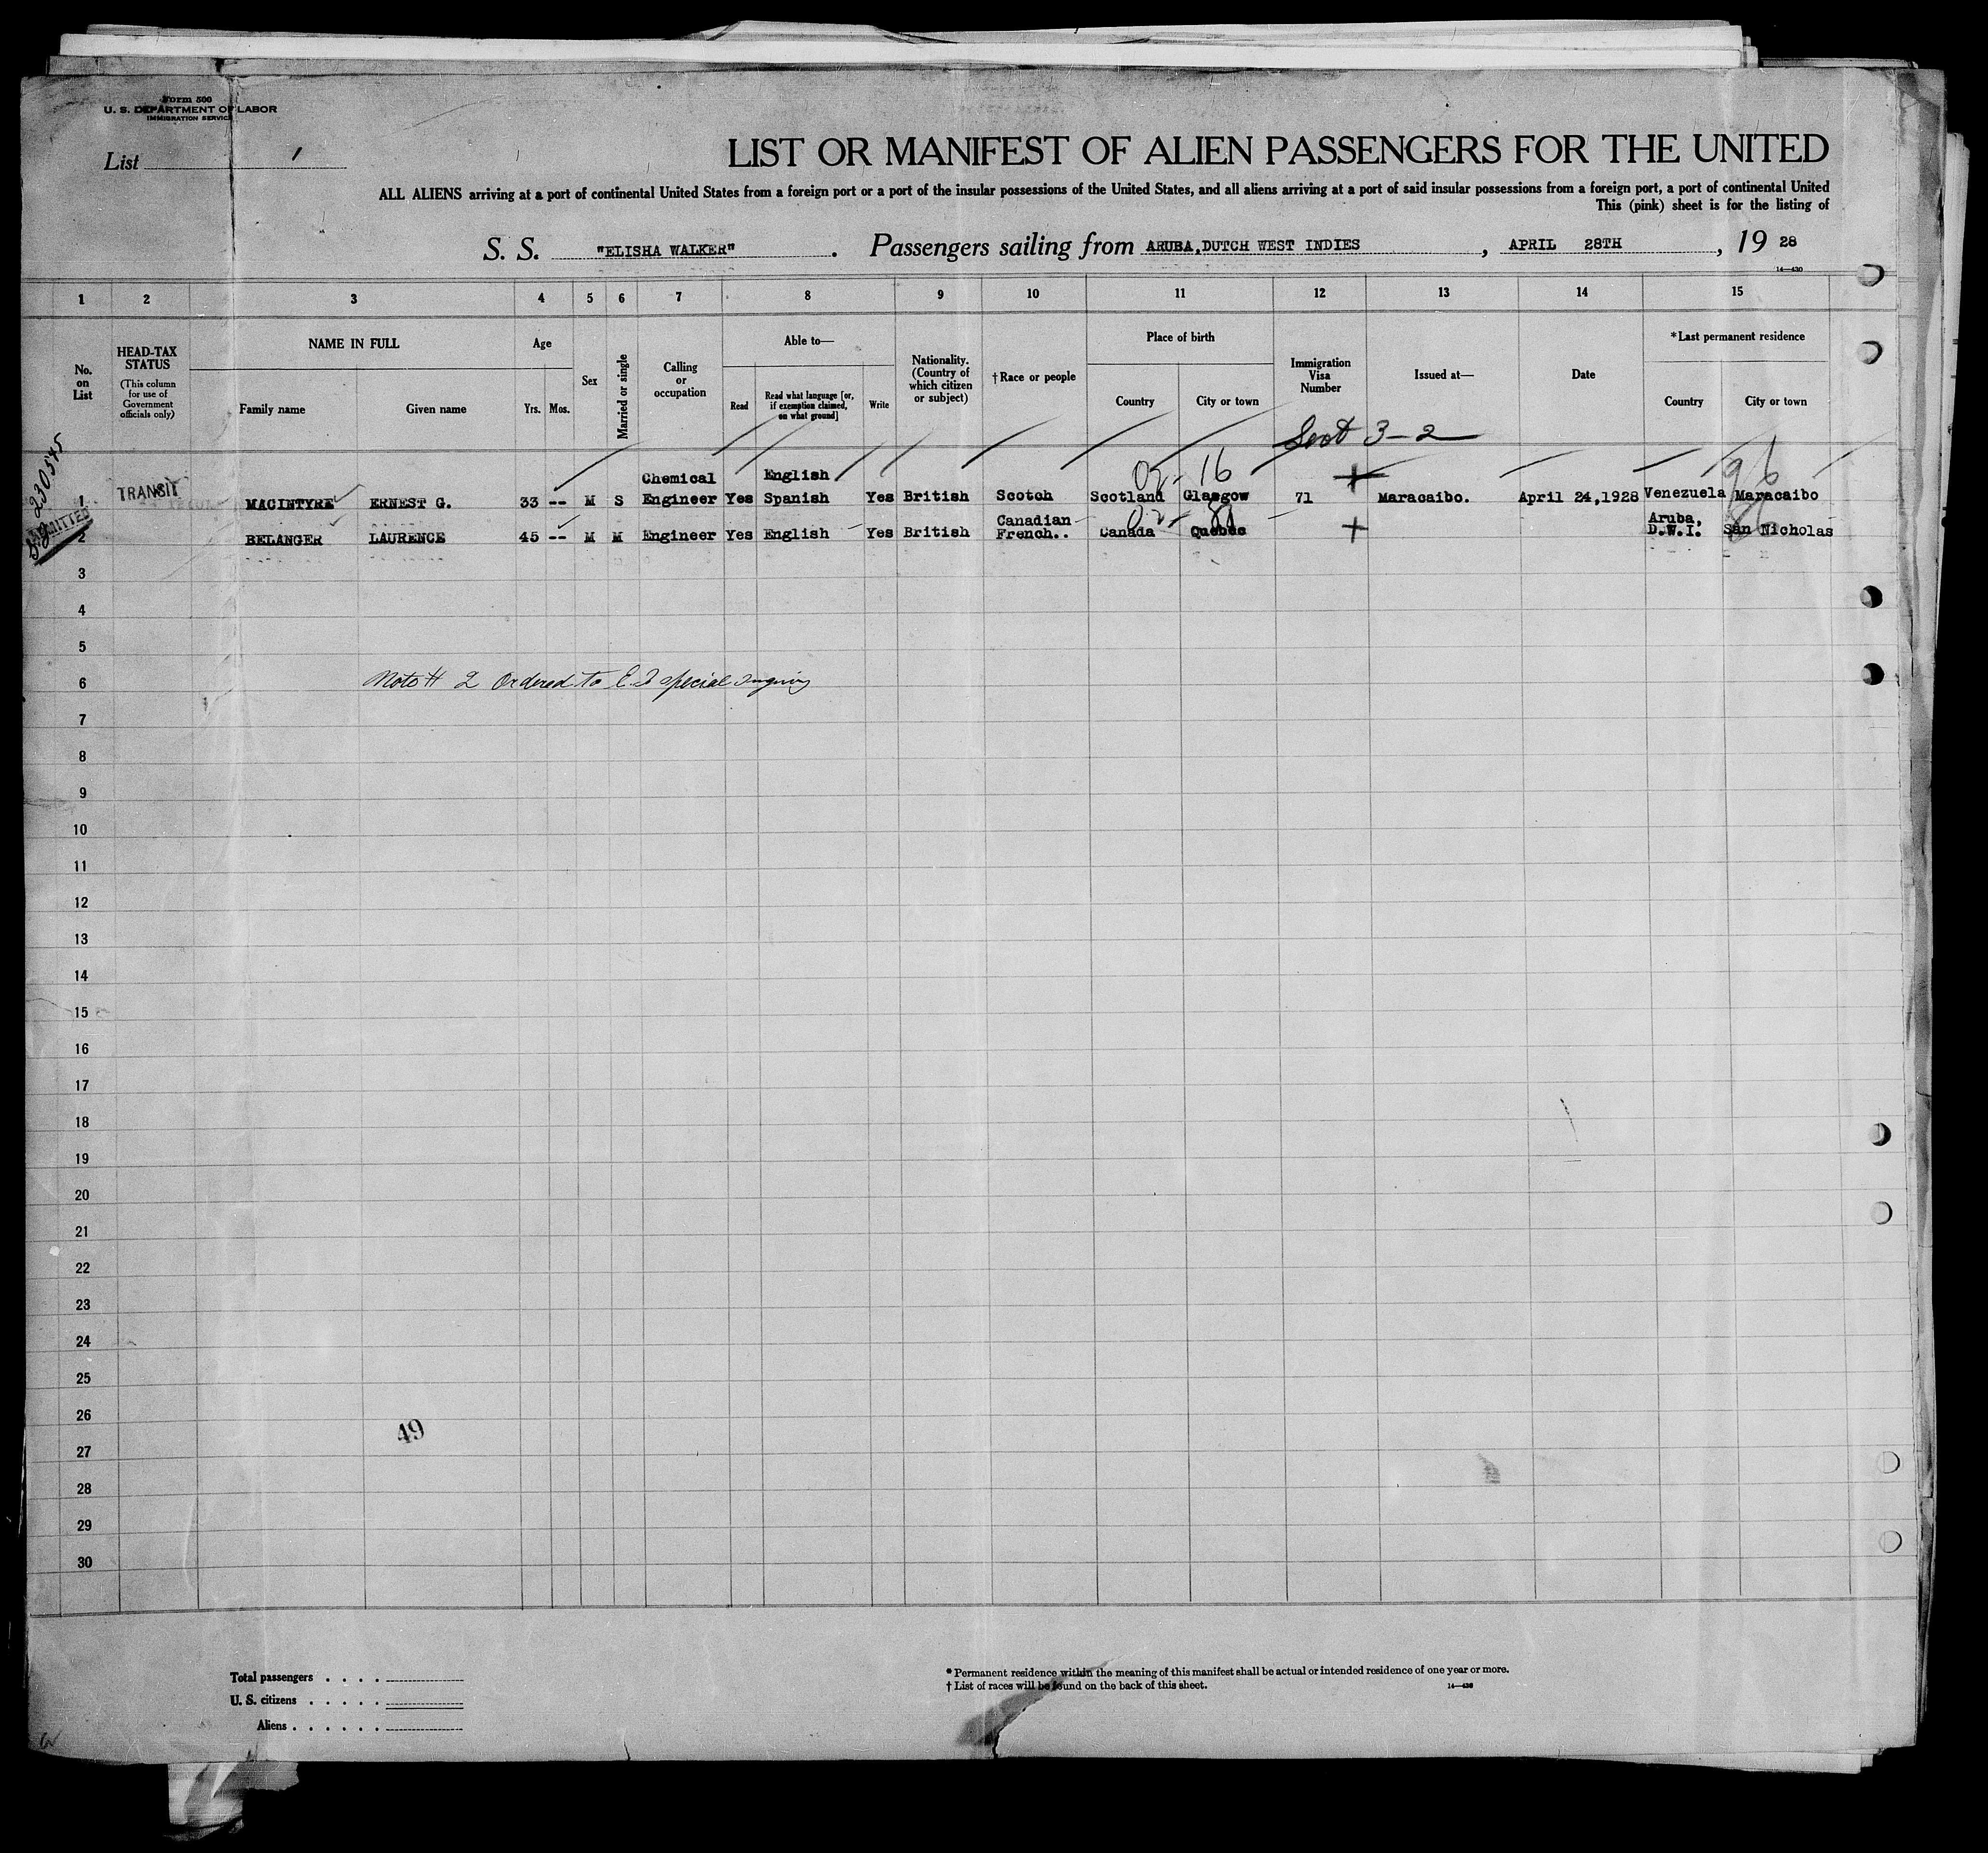 Form 500
U. S. DEPARTMENT OF LABOR
IMMIGRATION SERVICE
List 1
LIST OR MANIFEST OF ALIEN PASSENGERS FOR THE UNITED
ALL ALIENS arriving at a port of continental United States from a foreign port or a port of the insular possessions of the United States, and all aliens arriving at a port of said insular possessions from a foreign port, a port of continental United
This (pink) sheet is for the listing of
S. S. "ELISHA WALKER". Passengers sailing from ARUBA, DUTCH WEST INDIES, APRIL 28TH, 19 28
14—430
1 2 3 4 5 6 7 8 9 10 11 12 13 14 15
No. on List
HEAD-TAX STATUS
(This column for use of Government officials only)
NAME IN FULL
Family name
Given name
Age
Yrs. Mos.
Sex
Married or single
Calling or occupation
Able to—
Read
Read what language [or, if exemption claimed, on what ground]
Write
Nationality. (Country of which citizen or subject)
†Race or people
Place of birth
Country
City or town
Immigration Visa Number
Issued at—
Date
*Last permanent residence
Country
City or town
3-2
230545
02-16
96
1 TRANSIT MACINTYRE ERNEST G. 33 -- M S Chemical Engineer Yes English Spanish Yes British Scotch Scotland Glasgow 71 Maracaibo. April 24,1928 Venezuela Maracaibo
ADMITTED
2 BELANGER LAURENCE 45 -- M M Engineer Yes English Yes British Canadian French.. Canada Quebec Aruba, D.W.I. San Nicholas
3
4
5
6 Note # 2 Ordered to E.I. special inquiry
7
8
9
10
11
12
13
14
15
16
17
18
19
20
21
22
23
24
25
26
49
27
28
29
30
Total passengers . . . .
U. S. citizens . . . . .
Aliens . . . . . .
* Permanent residence within the meaning of this manifest shall be actual or intended residence of one year or more.
† List of races will be found on the back of this sheet.
14—430